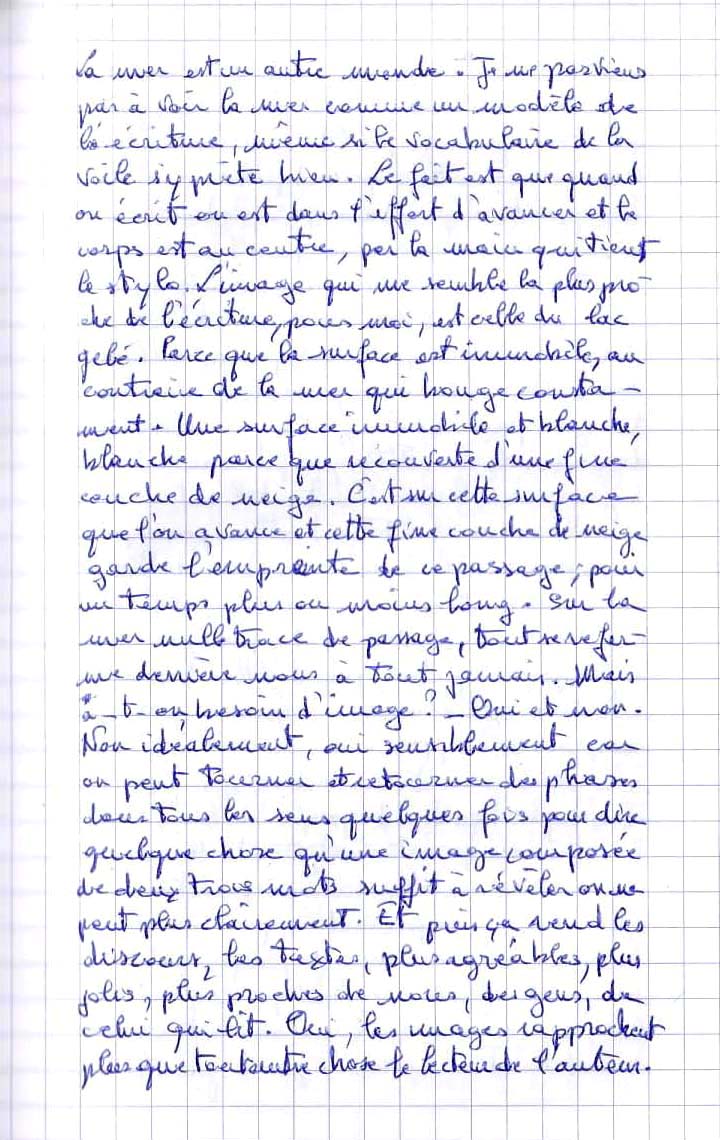 La mer est un autre monde. Je ne parviens
pas à voir la mer comme un modèle de
l'écriture, même si le vocabulaire de la
voile s'y prête bien. Le fait est que quand
on écrit on est dans l'effort d'avancer et le
corps est au centre, par la main qui tient
le stylo. L'image qui me semble la plus pro-
che de l'écriture, pour moi, est celle du lac
gelé. Parce que la surface est immobile, au
contraire de la mer qui bouge consta-
ment. Une surface immobile et blanche,
blanche parce que recouverte d'une fine
couche de neige. C'est sur cette surface
que l'on avance et cette fine couche de neige
garde l'empreinte de ce passage, pour
un temps plus ou moins long. Sur la
mer nulle trace de passage, tout se refer-
me derrière nous à tout jamais. Mais
a-t-on besoin d'image? - Oui et non.
Non idéalement, oui sensiblement car
on peut tourner et retourner des phrases
dans tous les sens quelques fois pour dire
quelque chose qu'une image composée
de deux trois mots suffit à révéler on ne
peut plus clairement. Et puis ça rend les
discours, les textes, plus agréables, plus
jolis, plus proches de nous, des gens, de
celui qui lit. Oui, les images rapprochent
plus que toute autre chose le lecteur de l'auteur.